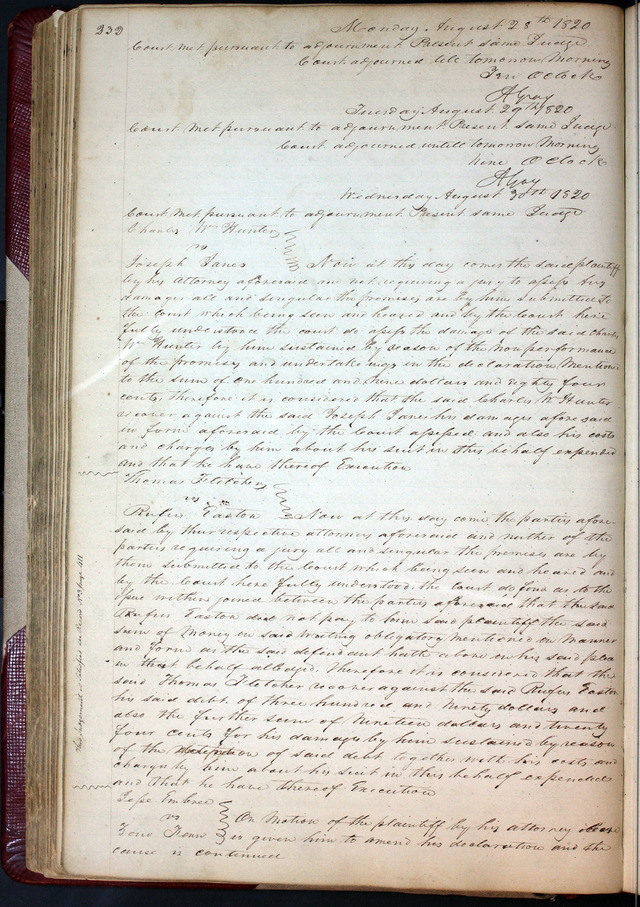 232
Monday August 28th 1820
Court met pursuant to adjournment Present same Judge
Court adjourned till tomorrow Morning
Ten O Clock
A Gray
Tuesday August 29th 1820
Court met pursuant to adjournment Present same Judge
Court adjourned untill tomorrow Morning
Nine O Clock
A Gray
Wednesday August 30th 1820
Court met pursuant to adjournment Present same Judge
Charles Wm Hunter
vs
Joseph Janes Now at this day comes the said plaintiff
by his Attorney aforesaid and not requiring a jury to assess his
damages all and singular the promises are by him submitted to
the Court which being seen and heared and by the Court here
fully understood the court do assess the damages of the said Charles
Wm Hunter by him sustained by reason of the Nonperformance
of the promises and undertakings in the declaration Mentioned
to the sum of One hundred and Nine dollars and Eighty four
cents, therefore it is considered that the said Charles W Hunter
recover against the said Joseph Janes his damages aforesaid
in form aforesaid by the Court assessed and also his costs
and charges by him about his suit in this behalf expended
and that he have thereof Execution
Thomas Fletcher
vs
Rufus Easton Now at this day come the parties afore-
said by their respective attornies aforesaid and neither of the
parties requiring a jury all and singular the premises are by
them submitted to the Court which being seen and heared and
by the Court here fully understood, the court do find as to the
issue within joined between the parties aforesaid that the said
Rufus Easton did not pay to him said plaintiff the said
sum of Money in said writing obligatory mentioned in Manner
and form as the said defendant hath above in his said plea
in that behalf alledged. therefore it is considered that the
said Thomas Fletcher recover against the said Rufus Easton
his said debt of three hundred and Ninety dollars and
also the further sum of Nineteen dollars and twenty
four cents for his damages by him sustained by reason
of the detention of said debt together with his costs and
charges by him about his suit in this behalf expended
and that he have thereof Execution
This judgement is satisfied see Record No 3 page 411
Jesse Embree
vs On Motion of the plaintiff by his attorney leave
is given him to amend his declaration and the
cause is continued